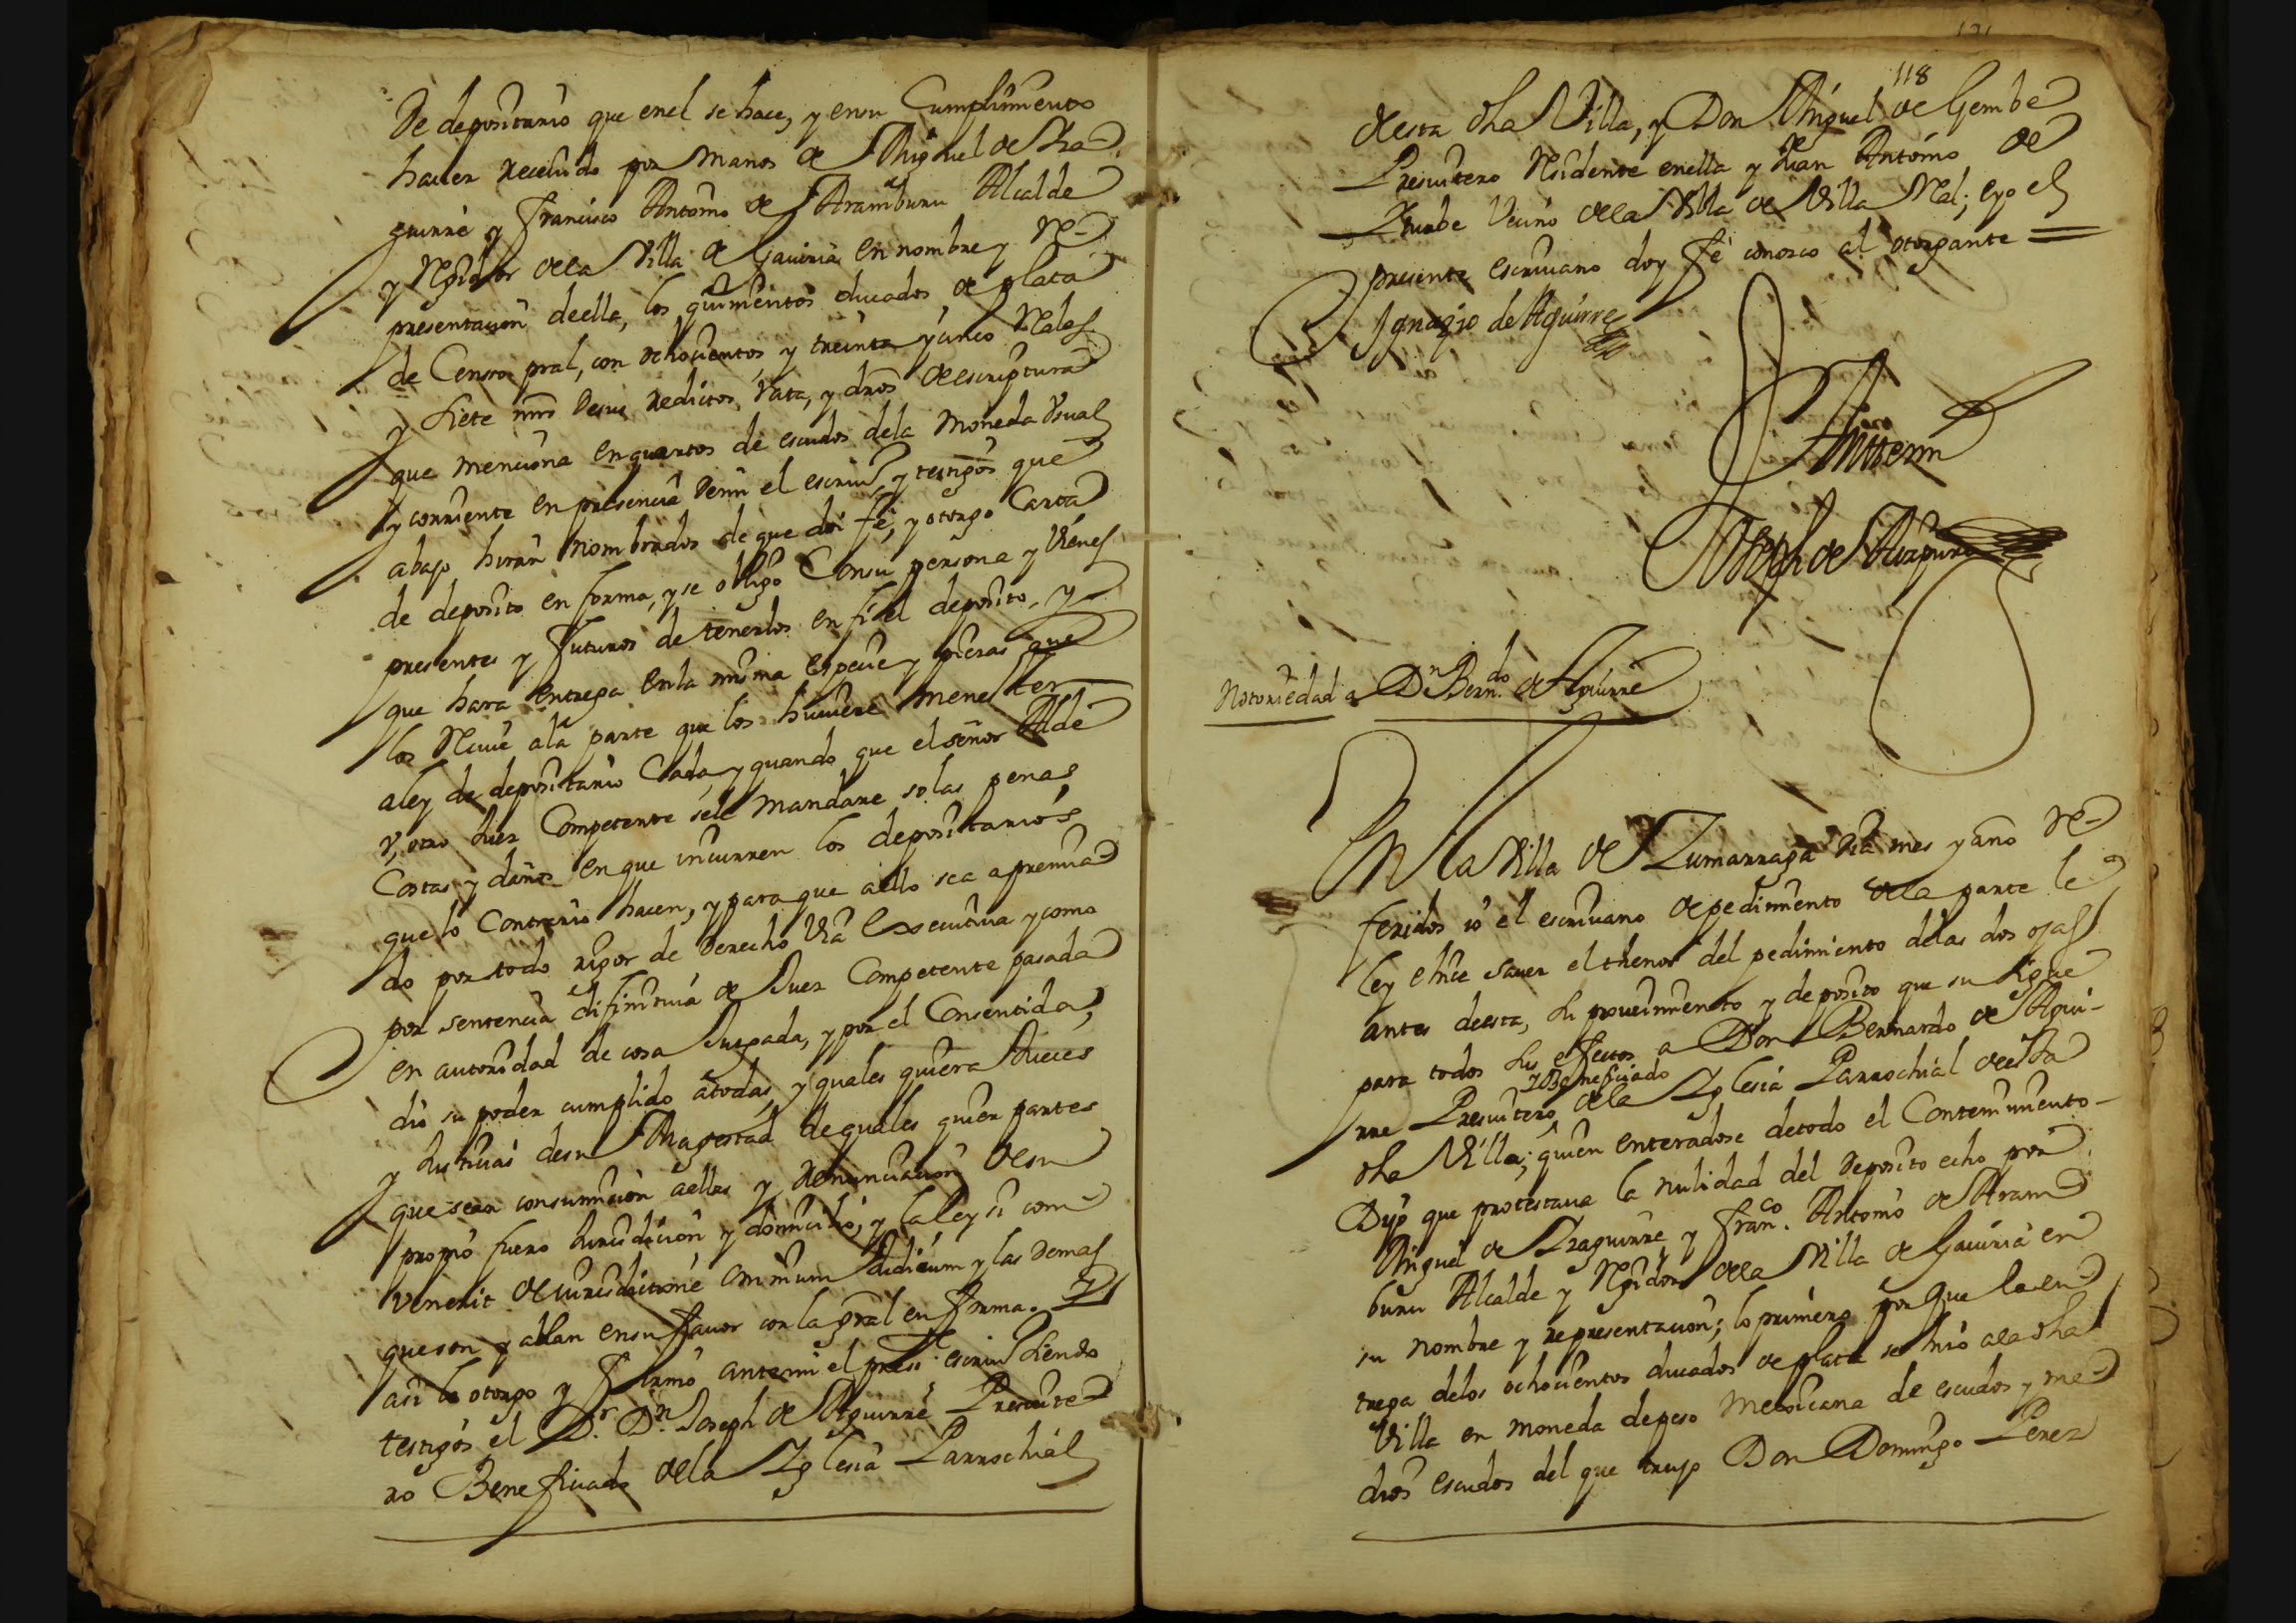 De depositario que enel se hace, y ensu Cumplimiento
haver recevido por manos de Miguel de Yza
guirre y Francisco Antonio de Aramburu Alcalde
y Regidor dela Villa de Gaviria en nombre y Re-
presentacion deella, los quinientos ducados de plata
de Censo pral, con ochocientos y treinta y cinco Reales
y siete mrs desus reditos, rata, y dros de escriptura
que menciona en quartos de escudos dela Moneda Usual
y corriente en presencia demi el escrivo y testigos que
abajo hiran nombrados de que doi fé, y otorgo Carta
de deposito en forma, y se obligo Consu persona y vienes
presentes y futuros de tenerlos en fiel deposito, y
que hara entrega enla misma especie y piezas que
los Recive ala parte que los huviere menester
a ley de depositario Cada y quando que el señor Alde
v, otro Juez Competente sele mandare so las penas,
Costas y daños en que incurren los depositarios
que lo Contrario hacen, y para que aello sea apremia
do por todo rigor de derecho Via Executiva y como
por sentencia difinitiva de Juez Competente pasada
en autoridad de cosa Juzgada, y por el Consentida,
dio su poder cumplido atodas, y quales quiera Jueces
y Justicias desu Magestad de quales quier partes
que sean consumicion aellas y renunciacion desu
propio fuero Jurisdicion y domicilio, y la ley si com
venerit de iurisdicione omnium Judicum y las demas
que son y ablan ensu favor con la gral en forma. Y
asi lo otorgo y firmó antemi el press.te escrivo siendo
testigos el Dr. Dn. Joseph de Aguirre Presvite
ro Beneficiado dela Yglesia Parrochial
118
desta dha Villa, y Don Miguel de Gembe
Presvitero Residente enella y Juan Antonio de
Yturbe Vecino dela Villa de Villa Real; e yo el
presente escrivano doy fé conozco al otorgante
Ignazio de Aguirre
Antemi
Joseph de Aizpuru
Notoriedad a Dn Bern.do de Aguirre
En la Villa de Zumarraga dia mes y año Re-
feridos io el escrivano de pedimiento dela parte le
ley e hice saver el thenor del pedimiento delas dos ojas
antes deesta, su proveimiento y deposito que su sigue
para todos sus efectos a Don Bernardo de Agui-
y Beneficiado
rre Presvitero dela Yglesia Parrochial deesta
dha Villa; quien enteradose detodo el Contenimiento
Dijo que protestava la nulidad del deposito echo por
Miguel de Yzaguirre y Fran.co Antonio de Aram
buru Alcalde y Regidor dela Villa de Gaviria en
su nombre y representacion; lo primero por que la en
trega delos ochocientos ducados de plata se hizo ala dha
Villa en moneda de peso Mexicana de escudos y me
dios escudos del que trujo Don Domingo Perez